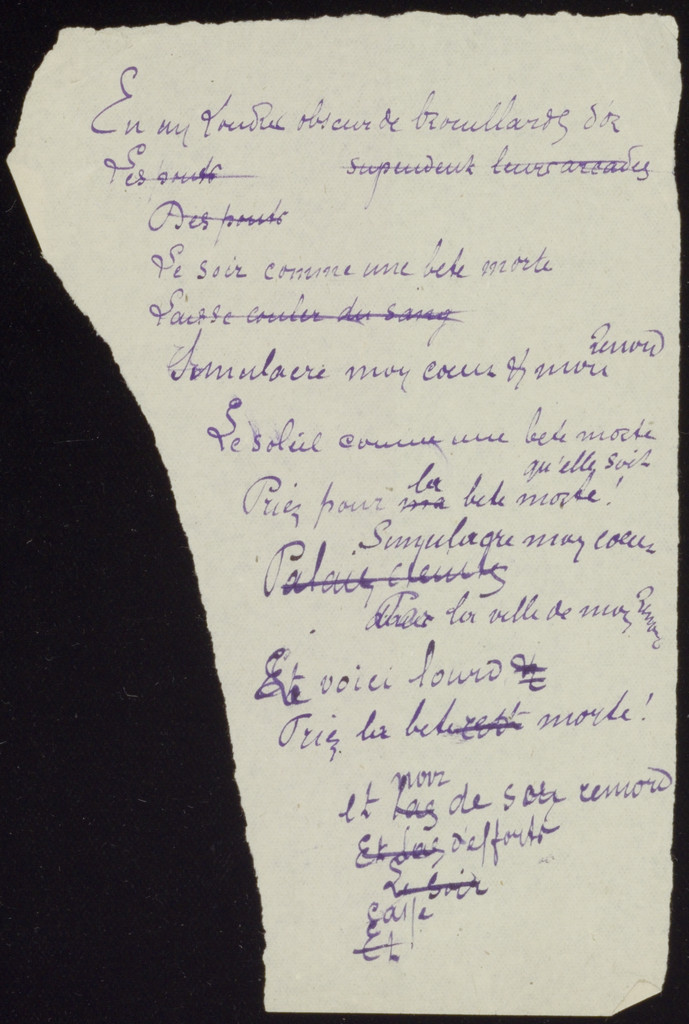 En un Londre obscur de brouillards d'or
Les ponts suspendent leurs arcades
Des ponts
Le soir comme une bete morte
Laisse couler du sang
Simulacre mon coeur & mon remord
Le soleil comme une bete morte
qu'elle soit
Priez pour ma la bete morte!
Simulacre mon coeur
Palais
la ville de mon remord
Et voici lourd &
Priez la bete morte!
noir
et las de son remord
Et las d'efforts
Le soir
Casse
Et